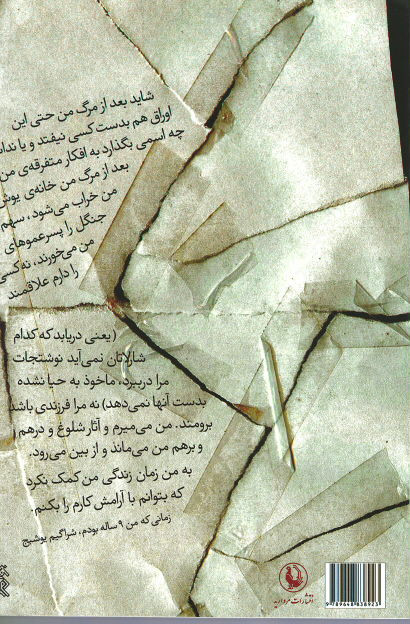 شاید بعد از مرگ من حتی این
اوراق هم بدست کسی نیفتد و یا نداند
چه اسمی بگذارد به افکار متفرقه‌ی من
بعد از مرگ من خانه‌ی یوش
من خراب می‌شود، سهم
جنگل را پسرعموهای
من می‌خورند، نه کسی
را دارم علاقمند
(یعنی دریابد که کدام
شارلاتان نمی‌آید نوشتجات
مرا دربرد، ماخوذ به حیا نشده
بدست آنها نمی‌دهد) نه مرا فرزندی باشد
برومند. من می‌میرم و آثار شلوغ و درهم
و برهم من می‌ماند و از بین می‌رود.
به من زمان زندگی من کمک نکرد
که بتوانم با آرامش کارم را بکنم.
زمانی که من ۹ ساله بودم، شراگیم یوشیج
انتشارات مروارید